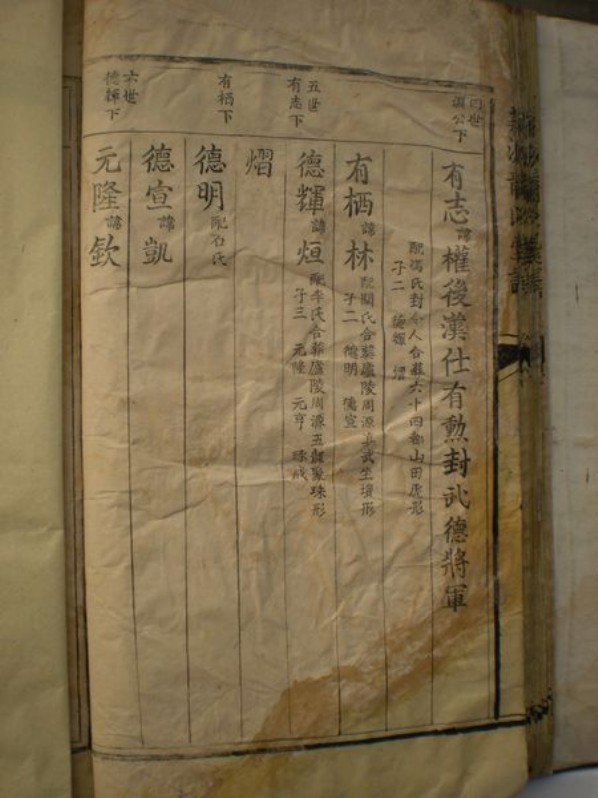 四世
公下
有志諱權後漢仕有勲封武德將軍
配馮氏封令人合葬六十四都山田虎形
子二 德輝 熠
有栖諱林配關氏合葬廬陵周源真武坐壇形
子二 德明 德宣
五世
有志下
德輝諱烜配李氏合葬廬陵周源五龍聚珠形
子三 元隆 元亨 球成
熠
有栖下
德明配石氏
德宣諱凱
六世
德輝下
元隆諱欽